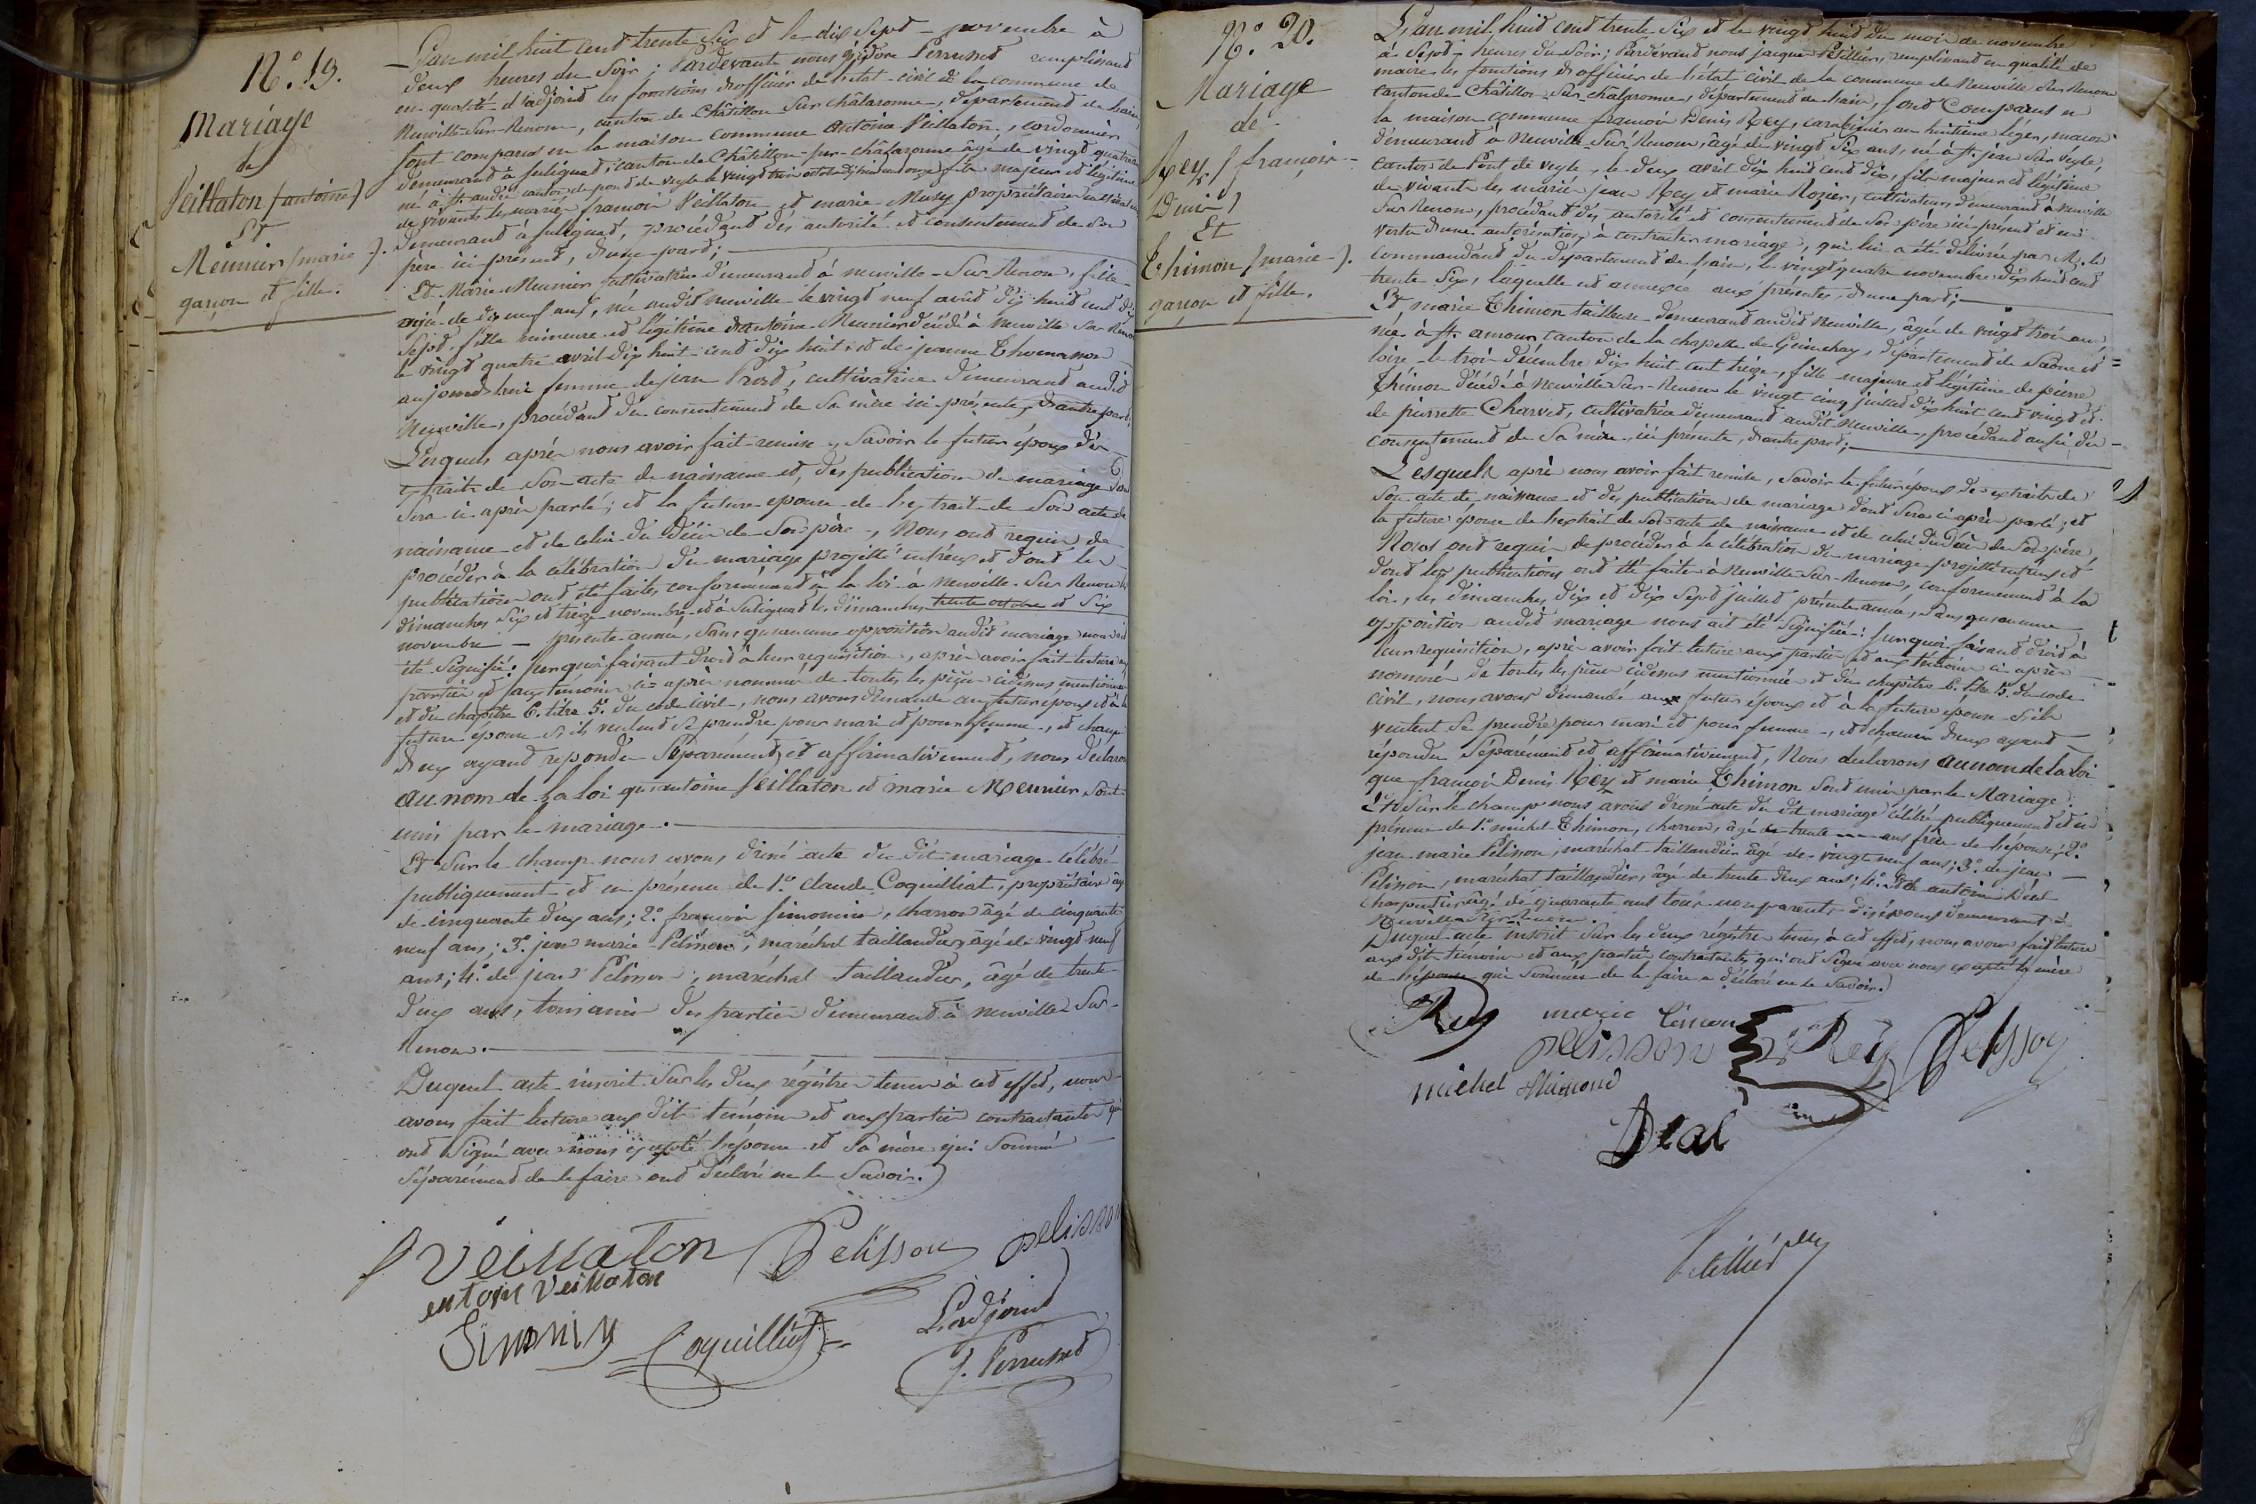 N.o 19.
Mariage
de
Veillaton (antoine)
Et
Meunier (marie).
garçon et fille.
L'an mil huit cent trente six et le dix sept novembre à
deux heures du soir; Pardevante nous isidore Perrussed remplissant
en qualité d'adjoint les fonctions d'officier de l'état-civil de la commune de
Neuville-sur-Renom, canton de Châtillon sur châlaronne, département de l'ain,
sont comparus en la maison commune antoine Veillaton, cordonnier
demeurant à sulignat, canton de Châtillon-sur-châlaronne âgé de vingt quatre
né à St. andré canton de pont de veyle le vingt octobre dix huit cent onze fils majeur et légitime
de vivants les mariés françois Veillaton et marie Musy propriétaires
demeurant à sulignat, procédant dès autorité et consentement de son
père ici présent, d'une part;
Et Marie Meunier cultivatrice demeurant à neuville-sur-Renom, fille
âgée de dix neuf ans, née audit neuville le vingt neuf août dix huit cent dix
sept, fille mineure et légitime d'antoine Meunier décédé à Neuville sur Renom
le vingt quatre avril dix huit cent dix huit et de jeanne Thomasson
aujourd'hui femme de jean Prost, cultivatrice demeurant audit
Neuville, procédant du consentement de sa mère ici présente, d'autre part,
Lesquels après nous avoir fait remise, savoir le futur époux des
extraits de son acte de naissance et des publication de mariage dont
sera ci après parlé; et la future epouse de l'extrait de son acte de
naissance et de celui du décès de son père, Nous ont requis de
procéder à la célébration du mariage projetté entr'eux et dont les
publications ont été faites conformément à la loi à neuville-sur Renom les
dimanches six et treize novembre et à Sulignat les dimanches trente octobre et six
novembre présente année, sans qu'aucune opposition audit mariage nous ait
été signifié: sur quoi faisant droit à leur requisition, après avoir fait lecture aux
parties et aux témoins ci-après nommés de toutes les pièces cidessus mentionnées
et du chapitre 6. titre 5. du code civil, nous avons demandé au futur époux et à la
future épouse s'ils veulent se prendre pour mari et pour femme, et chacun
d'eux ayant repondu séparément et affirmativement, nous déclarons
au nom de la loi qu'antoine Veillaton et marie Meunier sont
unis par le mariage.
Et sur le champ nous avons dressé acte du dit mariage célébré
publiquement et en présence de 1.o claude Coquilliat, propriétaire âgé
de cinquante deux ans; 2.o françois simonin, charron âgé de cinquante
neuf ans; 3.o jean marie Pelisson, maréchal taillandier, âgé de vingt neuf
ans; 4.o de jean Pelisson, maréchal taillandier, âgé de trente
deux ans, tous amis des parties demeurant à neuville sur
Renom.
Duquel acte inscrit sur les deux régistres tenus à cet effet, nous
avons fait lecture aux dit témoins et aux parties contractantes qui
ont signé avec nous excepté l'épouse et sa mère qui sommé
séparément de le faire ont déclaré ne le savoir.
f veillaton Pelisson pelisson
entoine Veillaton
Simonin Coquilliat L'adjoint
J. Perrussed
N.o 20.
Mariage
de
Rey, (françois
Denis)
Et
Thimon (marie).
garçon et fille.
L'an mil huit cent trente six et le vingt huit du mois de novembre
à sept heures du soir; Pardevant nous jacques Petillier, remplissant en qualité de
maire les fonctions d'officier de l'état civil de la commune de Neuville sur Renom
canton de Châtillon-sur châlaronne, département de l'ain, sont Comparus en
la maison commune françois Denis Rey, carabinier au huitième léger, maçon
demeurant à Neuville sur Renom, âgé de vingt six ans, né à St. jean sur veyle,
canton de Pont de veyle, le deux avril dix huit cent dix, fils majeur et légitime
de vivants les mariés jean Rey et marie Rozier, cultivateurs demeurant à neuville
sur Renom, procédant des autorité et consentement de son père ici présent et en
vertu d'une autorisation à contracter mariage, qui lui a été délivrée par M. le
commandant du département de l'ain, le vingt quatre novembre dix huit cent
trente six, laquelle est annexée aux présentes, d'une part;
Et marie Thimon tailleuse demeurant audit Neuville, âgée de vingt trois ans,
née à St. amour canton de la chapelle de Guinchay, département de Saône et
loire le trois décembre dix huit cent treize, fille majeure et légitime de pierre
Thimon décédé à Neuville-sur-Renom le vingt cinq juillet dix huit cent vingt et
de pierrette Charvet, cultivatrice demeurant audit Neuville, procédant aussi du
consentement de sa mère, ici présente, d'autre part;
Lesquels après nous avoir fait remise, savoir le futur époux des extraits de
son acte de naissance et des publication de mariage dont sera ci après parlé; et
la future épouse de l'extrait de son acte de naissance et de celui du décès de son père,
Nous ont requis de procéder à la célébration du mariage projetté entr'eux et
dont les publications ont été faites à Neuville-sur-Renom, conformément à la
loi, les dimanches dix et dix sept juillet présente année, sans qu'aucune
opposition audit mariage nous ait été signifiée: sur quoi faisant droit à
leur requisition, après avoir fait lecture aux parties et aux témoins ci après
nommés de toutes les pièces cidessus mentionnées et du chapitre 6. titre 5. du code
civil, nous avons demandé aux futur époux et à la future épouse s'ils
veulent se prendre pour mari et pour femme, et chacun d'eux ayant
répondu séparément et affirmativement, Nous déclarons au nom de la loi
que françois Denis Rey et marie Thimon sont unis par le Mariage.
Et sur le champ nous avons dressé acte du dit mariage célébré publiquement et en
présence de 1.o michel Thimon, charron, âgé de trente ans frère de l'épouse; 2.o
jean marie Pelisson, maréchal taillandier âgé de vingt neuf ans; 3.o de jean
Pelisson, maréchal taillandier, âgé de trente deux ans; 4.o et de antoine Déal
charpentier âgé de quarante ans tous non parents des époux demeurant à
Neuville sur Renom.
Duquel acte inscrit sur les deux régistres tenus à cet effet, nous avons fait lecture
aux dit témoins et aux parties contractantes qui ont signé avec nous excepté la mère
de l'épouse qui sommée de le faire a déclaré ne le savoir.
Rey marie timon
pelisson Rey Pelisson
michel thimond
Déal
Petillier